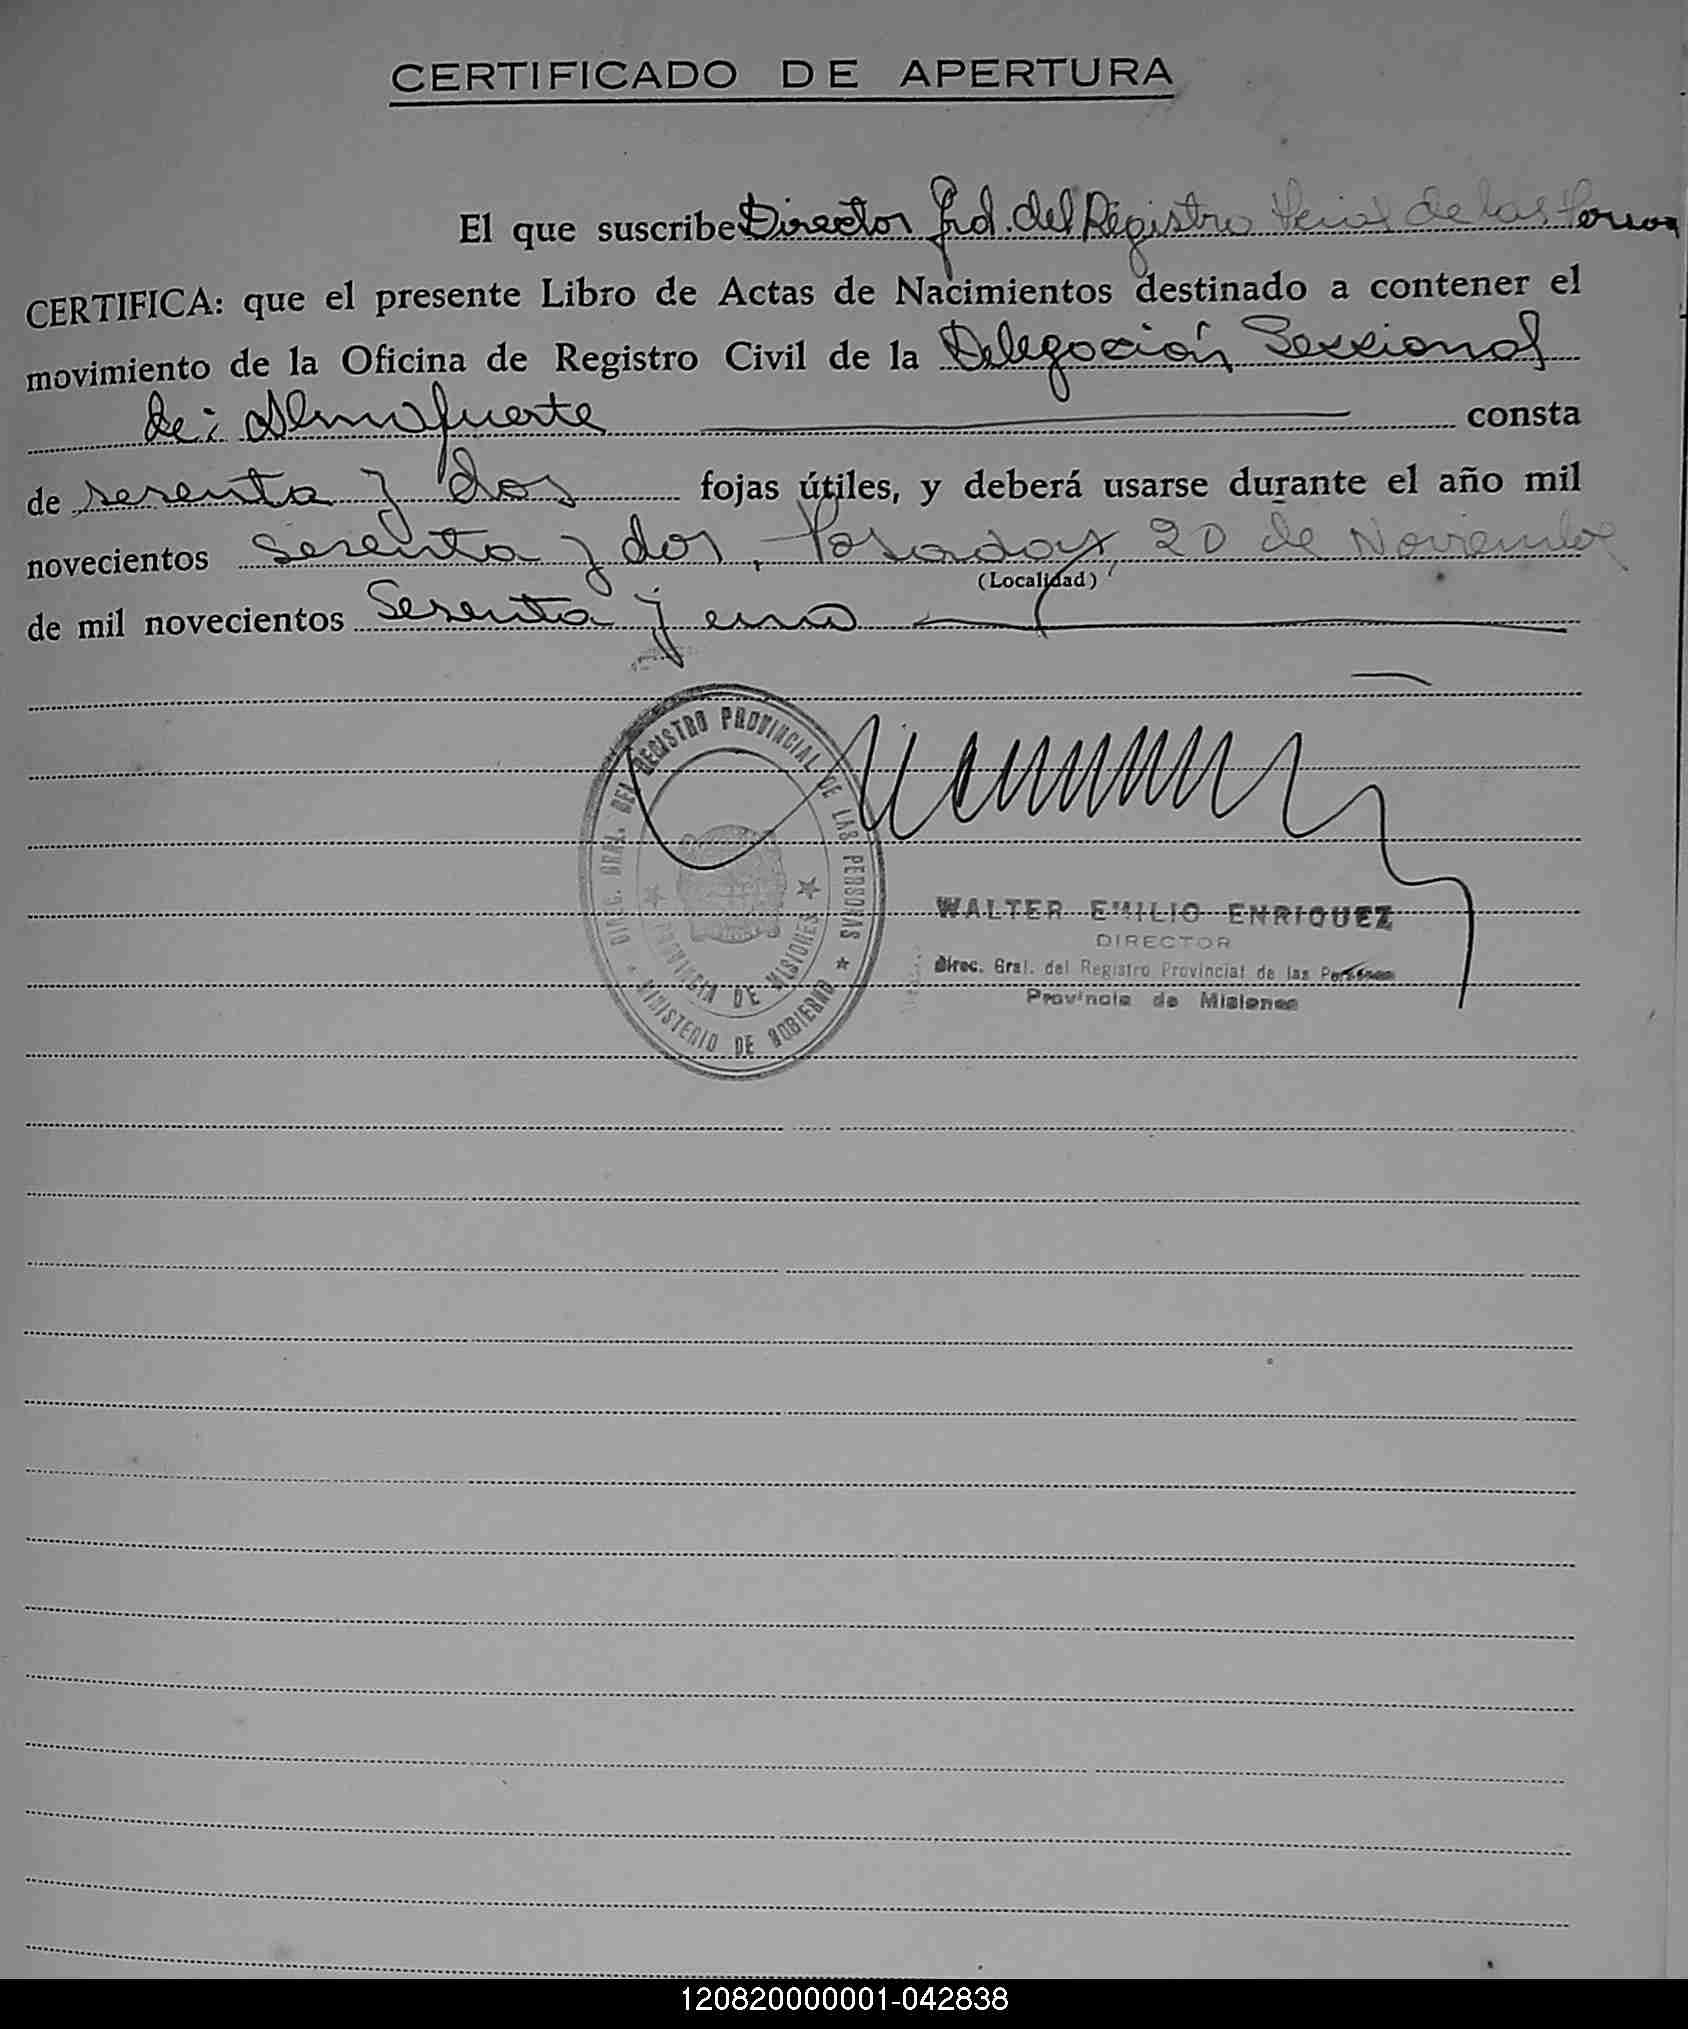 CERTIFICADO DE APERTURA
El que suscribe Director Gral. del Registro Pcial de las Person
CERTIFICA: que el presente Libro de Actas de Nacimientos destinado a contener el
movimiento de la Oficina de Registro Civil de la Delegación Seccional
de: Almafuerte consta
de sesenta y dos fojas útiles, y deberá usarse durante el año mil
novecientos sesenta y dos, Posadas, 20 de Noviembre
(Localidad)
de mil novecientos Sesenta y uno
DIREC. GRAL. DEL REGISTRO PROVINCIAL DE LAS PERSONAS
PROVINCIA DE MISIONES
MINISTERIO DE GOBIERNO
WALTER EMILIO ENRIQUEZ
DIRECTOR
Direc. Gral. del Registro Provincial de las Personas
Provincia de Misiones
120820000001-042838